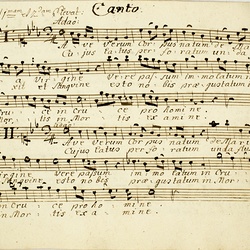 Canto.
Elevat.
Ado
I
A ve verum Cor pus natum de Ma
Cu jus la tus per fo ra tum un da
a Vir gine ve re pas sum im mo la tum in
xit et Sanguine es to no bis præ gus ta tum in
ce in Cru ce pro ho mi ne.
II
A ve verum Corpus natum de Mari
Cujus latus per fo ra tum unda flu
irgine. Vere passum im mo la tum in Cru
Sanguine esto nobis præ gus tatum in Mor
in Cru ce pro ho mi ne.
in Mor tis ex a mine.